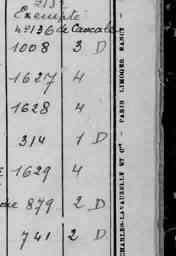 Exempté
n° 136 de Cancale
1008 3 D
1627 4
1628 4
314 1 D
1629 4
879 2 D
741 2 D
CHARLES-LAVAUZELLE ET Cie — PARIS LIMOGES NANCY